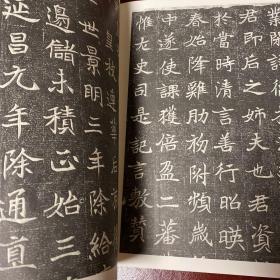 君即后之姉夫也君資
於當時清言善行昭暎
春始降雞肋初附頻歲
中遂使課獲倍盈二蕃
惟左史司是記言敷贊
皇枝連華后
世景明三年除給
邊儲未積正始三
延昌元年除通直